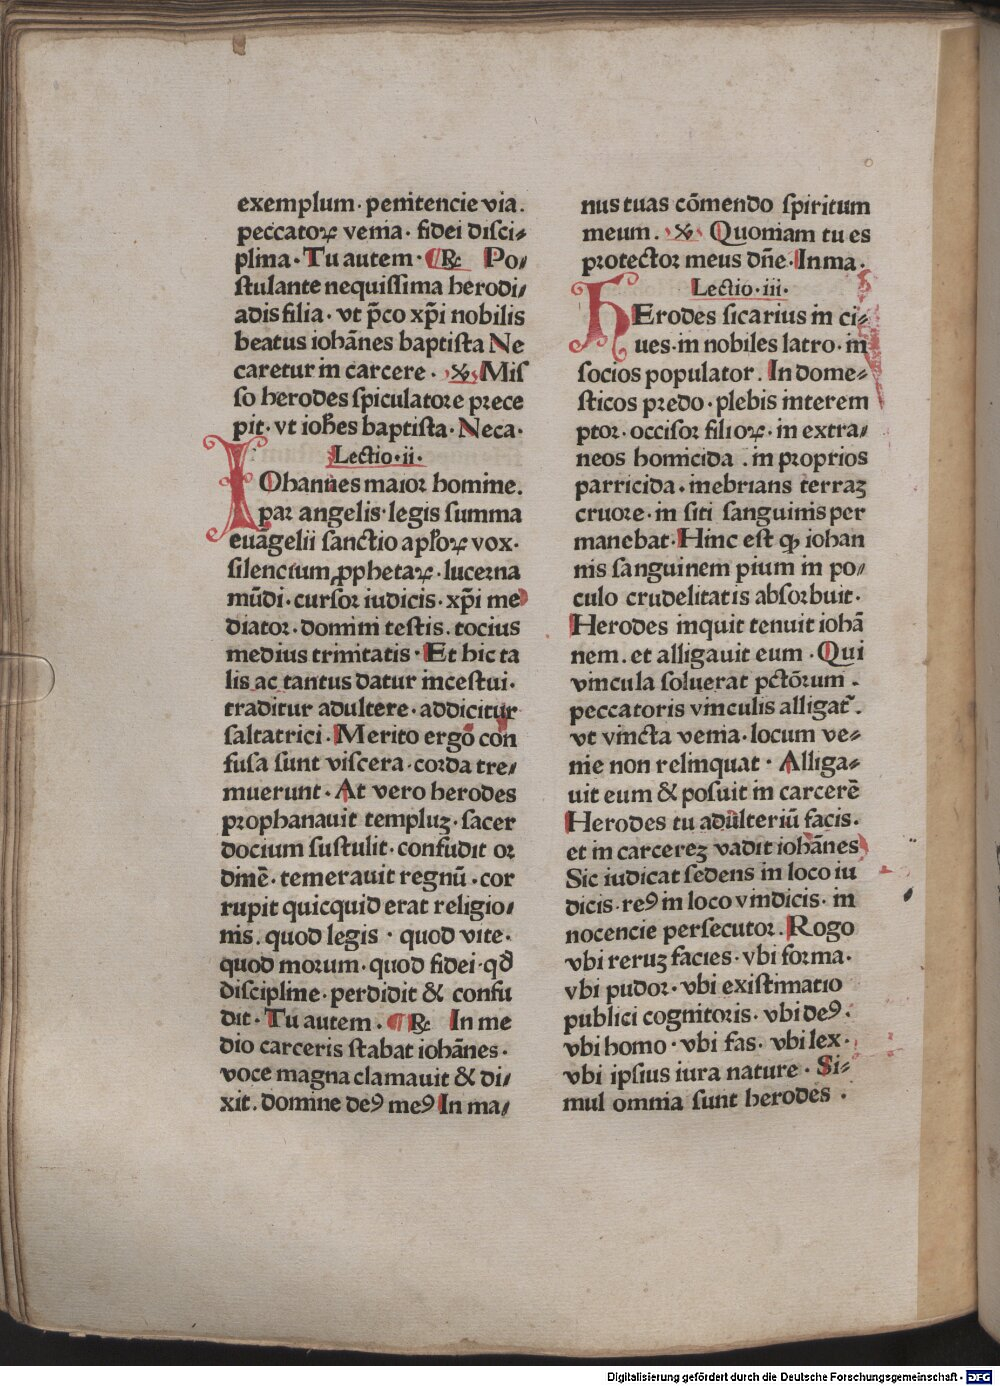 exemplum· penitencie via.
peccatoꝝ venia· fidei disci⸗
plina· Tu autem· ¶ ℟ Po⸗
stulante nequissima herodi⸗
adis filia· vt p̄co xp̄i nobilis
beatus iohānes baptista Ne
caretur in carcere· ℣ Mis
so herodes spiculatore prece
pit· vt ioh̄es baptista· Neca·
Lectio·ii·
IOhannes maior homine.
par angelis· legis summa
euāgelii sanctio apl'oꝝ vox·
silencium ꝓphetaꝝ· lucerna
mūdi· cursor iudicis· xp̄i me
diator· domini testis. tocius
medius trinitatis· Et hic ta
lis ac tantus datur incestui·
traditur adultere· addicitur
saltatrici· Merito ergo con
fusa sunt viscera· corda tre⸗
muerunt· At vero herodes
prophanauit templuꝫ· sacer
docium sustulit· confudit or
dinē· temerauit regnū· cor
rupit quicquid erat religio⸗
nis. quod legis· quod vite·
quod morum· quod fidei· qđ
discipline· perdidit & confu
dit· Tu autem· ¶ ℟ In me
dio carceris stabat iohānes·
voce magna clamauit & di⸗
xit. domine deꝰ meꝰ In ma⸗
nus tuas cōmendo spiritum
meum. ℣ Quoniam tu es
protector meus dn̄e· In ma·
Lectio·iii·
HErodes sicarius in ci⸗
ues· in nobiles latro· in
socios populator. In dome⸗
sticos predo· plebis interem
ptor· occisor filioꝝ· in extra⸗
neos homicida. in proprios
parricida· inebrians terraꝫ
cruore· in siti sanguinis per
manebat· Hinc est ꝙ iohan
nis sanguinem pium in po⸗
culo crudelitatis absorbuit·
Herodes inquit tenuit iohā
nem. et alligauit eum· Qui
vincula soluerat pctōrum·
peccatoris vinculis alligat᷑.
vt vincta venia· locum ve⸗
nie non relinquat· Alliga⸗
uit eum & posuit in carcerē
Herodes tu adulteriū facis·
et in carcereꝫ vadit iohānes
Sic iudicat sedens in loco iu
dicis· reꝰ in loco vindicis· in
nocencie persecutor. Rogo
vbi reruꝫ facies· vbi forma·
vbi pudor· vbi existimatio
publici cognitoris· vbi deꝰ·
vbi homo· vbi fas· vbi lex·
vbi ipsius iura nature· Si⸗
mul omnia sunt herodes·
Digitalisierung gefördert durch die Deutsche Forschungsgemeinschaft - DFG